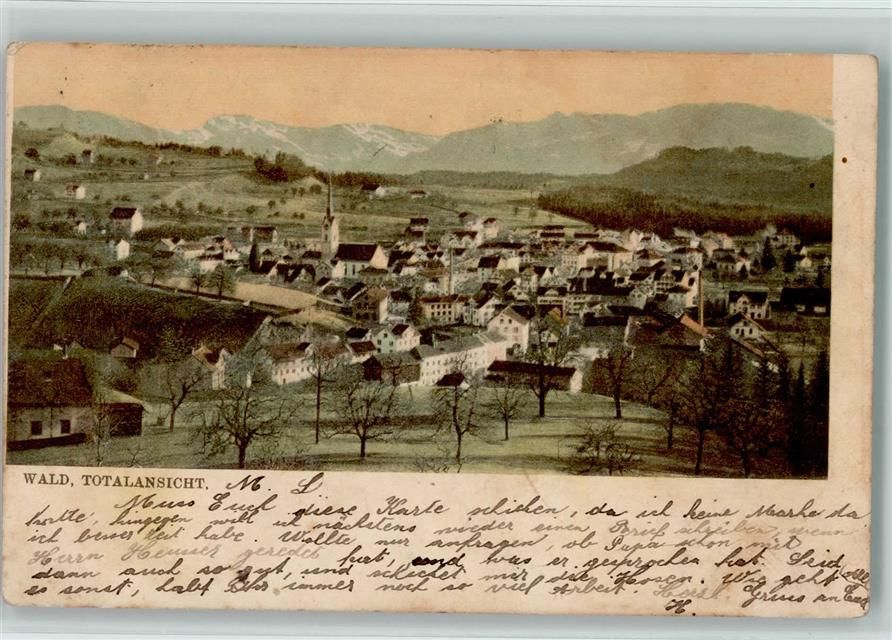 WALD, TOTALANSICHT.
M. L
Muss Euch diese Karte schicken, da ich keine Marke da
hatte, hingegen will ich nächstens wieder einen Brief schreiben, wenn
ich besser Zeit habe. Wollte nur anfragen, ob Papa schon mit
Herrn Heusser geredet hat, und was er gesprochen hat. Seid
dann auch so gut, und schicket mir die Hosen. Wie geht
es sonst, habt Ihr immer noch so viel Arbeit. Herzl. Gruss an Euch
alle
H.